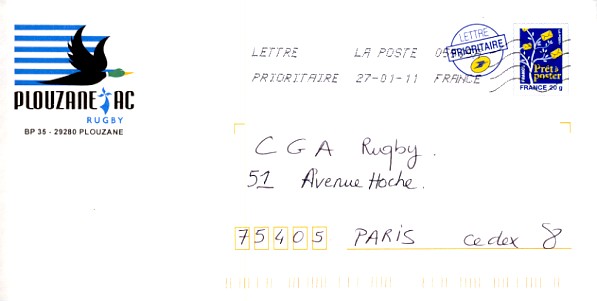 PLOUZANE AC
RUGBY
BP 35 - 29280 PLOUZANE
LETTRE LA POSTE
PRIORITAIRE 27-01-11 FRANCE
LETTRE
PRIORITAIRE
Prêt à
poster
FRANCE 20 g
C G A Rugby.
51 Avenue Hoche.
75405 PARIS cedex 8